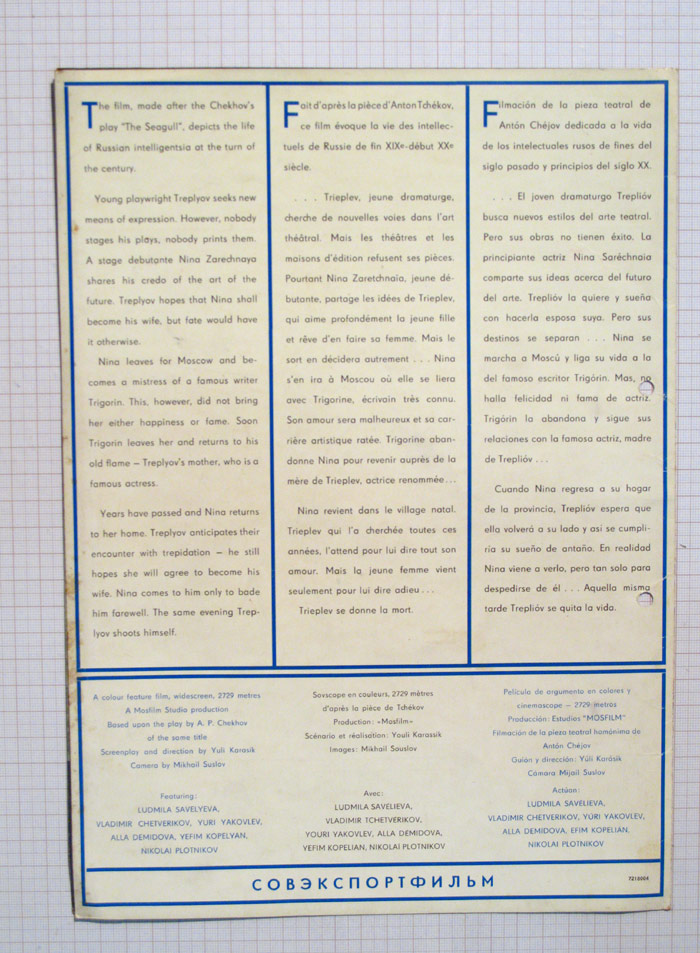 The film, made after the Chekhov's
play "The Seagull", depicts the life
of Russian intelligentsia at the turn of
the century.
Young playwright Treplyov seeks new
means of expression. However, nobody
stages his plays, nobody prints them.
A stage debutante Nina Zarechnaya
shares his credo of the art of the
future. Treplyov hopes that Nina shall
become his wife, but fate would have
it otherwise.
Nina leaves for Moscow and be-
comes a mistress of a famous writer
Trigorin. This, however, did not bring
her either happiness or fame. Soon
Trigorin leaves her and returns to his
old flame – Treplyov's mother, who is a
famous actress.
Years have passed and Nina returns
to her home. Treplyov anticipates their
encounter with trepidation – he still
hopes she will agree to become his
wife. Nina comes to him only to bade
him farewell. The same evening Trep-
lyov shoots himself.
Fait d'après la pièce d'Anton Tchékov,
ce film évoque la vie des intellec-
tuels de Russie de fin XIXe-début XXe
siècle.
. . . Trieplev, jeune dramaturge,
cherche de nouvelles voies dans l'art
théâtral. Mais les théâtres et les
maisons d'édition refusent ses pièces.
Pourtant Nina Zaretchnaïa, jeune dé-
butante, partage les idées de Trieplev,
qui aime profondément la jeune fille
et rêve d'en faire sa femme. Mais le
sort en décidera autrement . . . Nina
s'en ira à Moscou où elle se liera
avec Trigorine, écrivain très connu.
Son amour sera malheureux et sa car-
rière artistique ratée. Trigorine aban-
donne Nina pour revenir auprès de la
mère de Trieplev, actrice renommée . . .
Nina revient dans le village natal.
Trieplev qui l'a cherchée toutes ces
années, l'attend pour lui dire tout son
amour. Mais la jeune femme vient
seulement pour lui dire adieu . . .
Trieplev se donne la mort.
Filmación de la pieza teatral de
Antón Chéjov dedicada a la vida
de los intelectuales rusos de fines del
siglo pasado y principios del siglo XX.
. . . El joven dramaturgo Treplióv
busca nuevos estilos del arte teatral.
Pero sus obras no tienen éxito. La
principiante actriz Nina Saréchnaia
comparte sus ideas acerca del futuro
del arte. Treplióv la quiere y sueña
con hacerla esposa suya. Pero sus
destinos se separan . . . Nina se
marcha a Moscú y liga su vida a la
del famoso escritor Trigórin. Mas, no
halla felicidad ni fama de actriz.
Trigórin la abandona y sigue sus
relaciones con la famosa actriz, madre
de Treplióv . . .
Cuando Nina regresa a su hogar
de la provincia, Treplióv espera que
ella volverá a su lado y asi se cumpli-
ría su sueño de antaño. En realidad
Nina viene a verlo, pero tan solo para
despedirse de él . . . Aquella misma
tarde Treplióv se quita la vida.
A colour feature film, widescreen, 2729 metres
A Mosfilm Studio production
Based upon the play by A. P. Chekhov
of the same title
Screenplay and direction by Yuli Karasik
Camera by Mikhail Suslov
Featuring:
LUDMILA SAVELYEVA,
VLADIMIR CHETVERIKOV, YURI YAKOVLEV,
ALLA DEMIDOVA, YEFIM KOPELYAN,
NIKOLAI PLOTNIKOV
Sovscope en couleurs, 2729 mètres
d'après la pièce de Tchékov
Production: «Mosfilm»
Scénario et réalisation: Youli Karassik
Images: Mikhaïl Souslov
Avec:
LUDMILA SAVELIEVA,
VLADIMIR TCHETVERIKOV,
YOURI YAKOVLEV, ALLA DEMIDOVA,
YEFIM KOPELIAN, NIKOLAI PLOTNIKOV
Película de argumento en colores y
cinemascope – 2729 metros
Producción: Estudios "MOSFILM"
Filmación de la pieza teatral homónima de
Antón Chéjov
Guión y dirección: Yúli Karásik
Cámara Mijail Suslov
Actúan:
LUDMILA SAVELIEVA,
VLADIMIR CHETVERIKOV, YURI YAKOVLEV,
ALLA DEMIDOVA, EFIM KOPELIAN,
NIKOLAI PLOTNIKOV
СОВЭКСПОРТФИЛЬМ
7218004